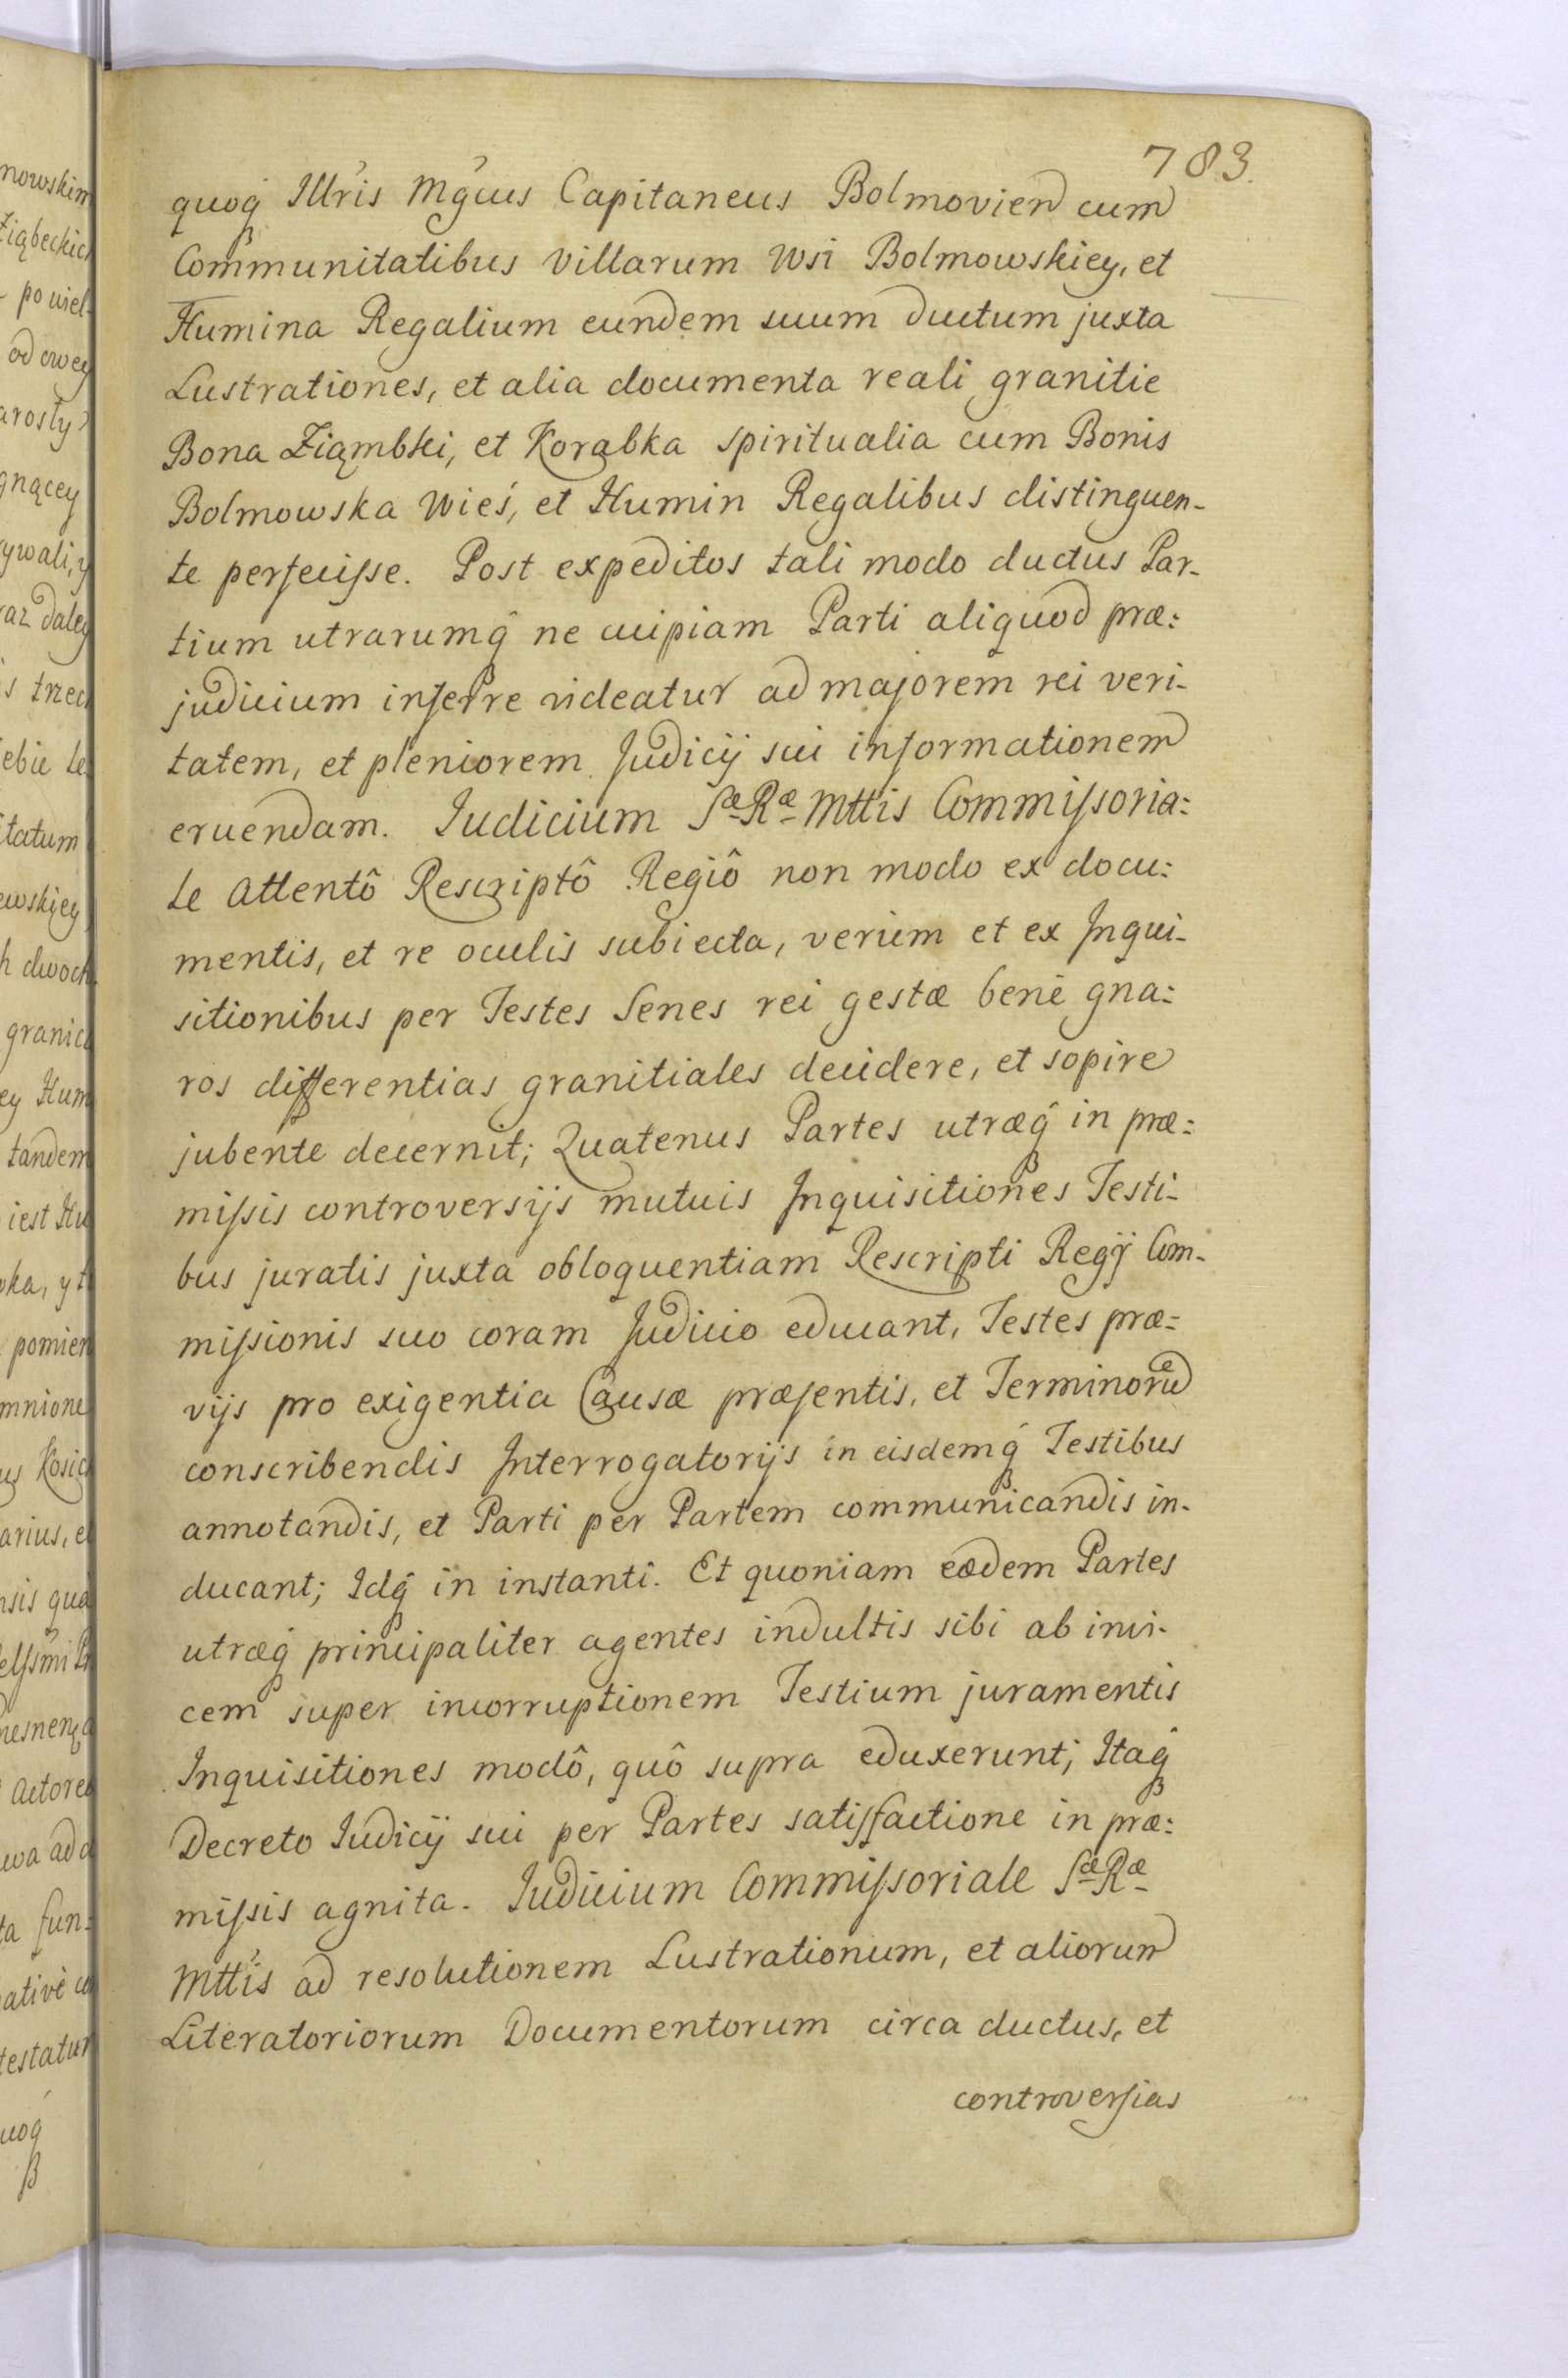 783.
quoq́ Illris Mgcus Capitaneus Bolmovien cum
Communitatibus Villarum Wsi Bolmowskiey, et
Humina Regalium eundem suum ductum juxta
Lustrationes, et alia documenta reali granitie
Bona Ziąmbki, et Korabka spiritualia cum Bonis
Bolmowska Wieś, et Humin Regalibus distinguen-
te perfecisse. Post expeditos tali modo ductus Par-
tium utrarumq́ ne cuipiam Parti aliquod præ:
judicium inferre videatur ad majorem rei veri-
tatem, et pleniorem Judicij sui informationem
eruendam. Judicium Sæ Ræ Mttis Commissoria:
le Attentô Rescriptô Regiô non modo ex docu:
mentis, et re oculis subiecta, verùm et ex Inqui-
sitionibus per Testes Senes rei gestæ benè gna:
ros differentias granitiales decidere, et sopire
jubente decernit; Quatenus Partes utræq́ in præ:
missis controversijs mutuis Inquisitiones Testi-
bus juratis juxta obloquentiam Rescripti Regij Com-
missionis suo coram Judicio educant, Testes præ=
vijs pro exigentia Causæ præsentis, et Terminorũ
conscribendis Interrogatorijs in eisdemq́ Testibus
annotandis, et Parti per Partem communicandis in-
ducant; Idq́ in instanti. Et quoniam eædem Partes
utræq́ principaliter agentes indultis sibi ab invi-
cem super incorruptionem Testium juramentis
Inquisitiones modô, quô supra eduxerunt; Itaq́
Decreto Judicij sui per Partes satisfactione in præ:
missis agnita. Judicium Commissoriale Sæ Ræ
Mttis ad resolutionem Lustrationum, et aliorum
Literatoriorum Documentorum circa ductus, et
controversias